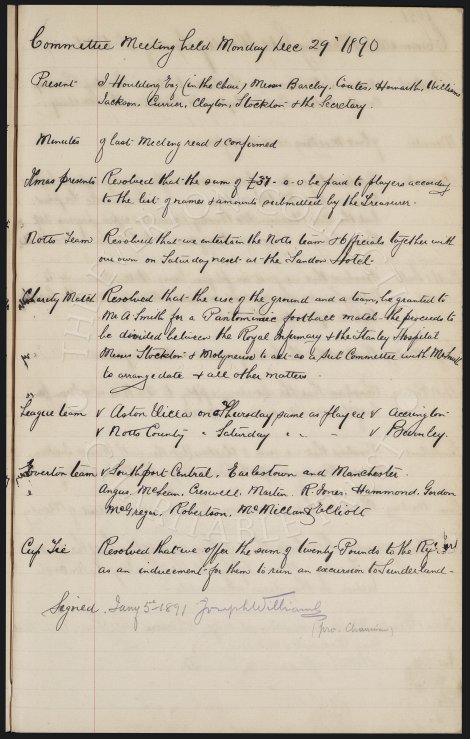 Committee Meeting held Monday Dec 29th 1890
Present J Houlding Esq (in the chair) Messrs Barclay, Coates, Howarth, Williams
Jackson, Currier, Clayton, Stockton & the Secretary.
Minutes of last Meeting read & confirmed
Xmas presents Resolved that the sum of £37-0-0 be paid to players according
to the list of names & amounts submitted by the Treasurer.
Notts Team Resolved that we entertain the Notts team & Officials together with
our own on Saturday next at the Sandon Hotel
Charity Match Resolved that the use of the ground and a team, be granted to
Mr A Smith for a Pantomimic football match the proceeds to
be divided between the Royal Infirmary & the Stanley Hospital
Messrs Stockton & Molyneux to act as a Sub Committee with Mr Smith
to arrange date & all other matters.
League team v Aston Villa on Thursday same as played v Accrington
v Notts County " Saturday " " " v Burnley.
Everton team v Southport Central, Earlestown and Manchester.
Angus, McLean, Creswell, Martin, R. Jones, Hammond, Gordon
McGregor, Robertson, McMillan & Elliott
Cup Tie Resolved that we offer the sum of twenty Pounds to the Ry.
as an inducement for them to run an excursion to Sunderland-
Signed Jany 5th 1891 Joseph Williams
(pro. Chairman)